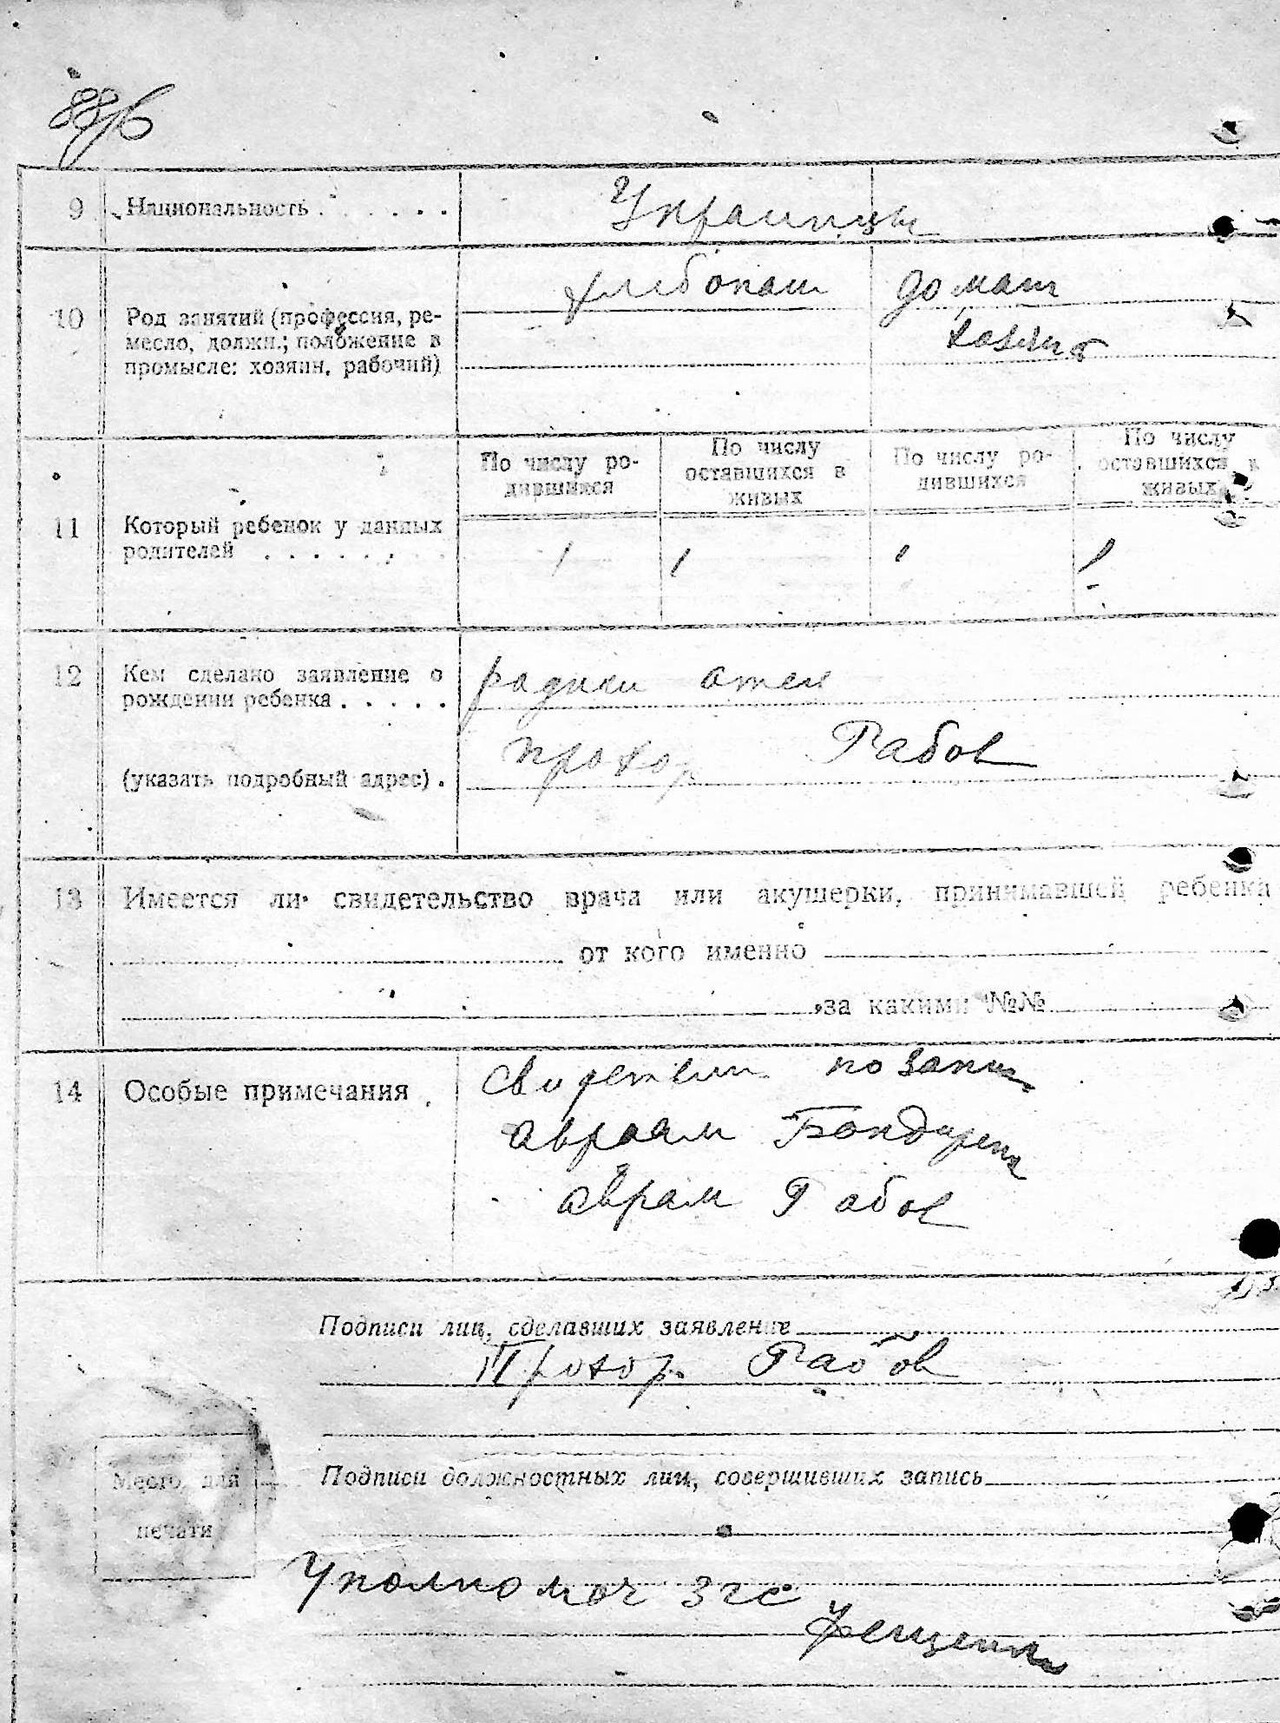 88/6
9 Национальность . . . . . . Украинцы
хлебопаш домаш
хозяйст
10 Род занятий (профессия, ре-
месло, должн.; положение в
промысле: хозяин, рабочий)
По числу ро-
дившихся
По числу
оставшихся в
живых
По числу ро-
дившихся
По числу
оставшихся в
живых
11 Который ребенок у данных
родителей . . . . . . .
1 1 1 1
12 Кем сделано заявление о
рождении ребенка . . . . .
отец
(указать подробный адрес) .
Прохор Рабов
13 Имеется ли свидетельство врача или акушерки, принимавшей ребенка
от кого именно
за какими №№
14 Особые примечания .
Свидетели по запис
Авраам Бондарен
Аврам Рабов
Подписи лиц, сделавших заявление
Прохор Рабов
Подписи должностных лиц, совершивших запись
Место для
печати
Уполномоч ЗГС